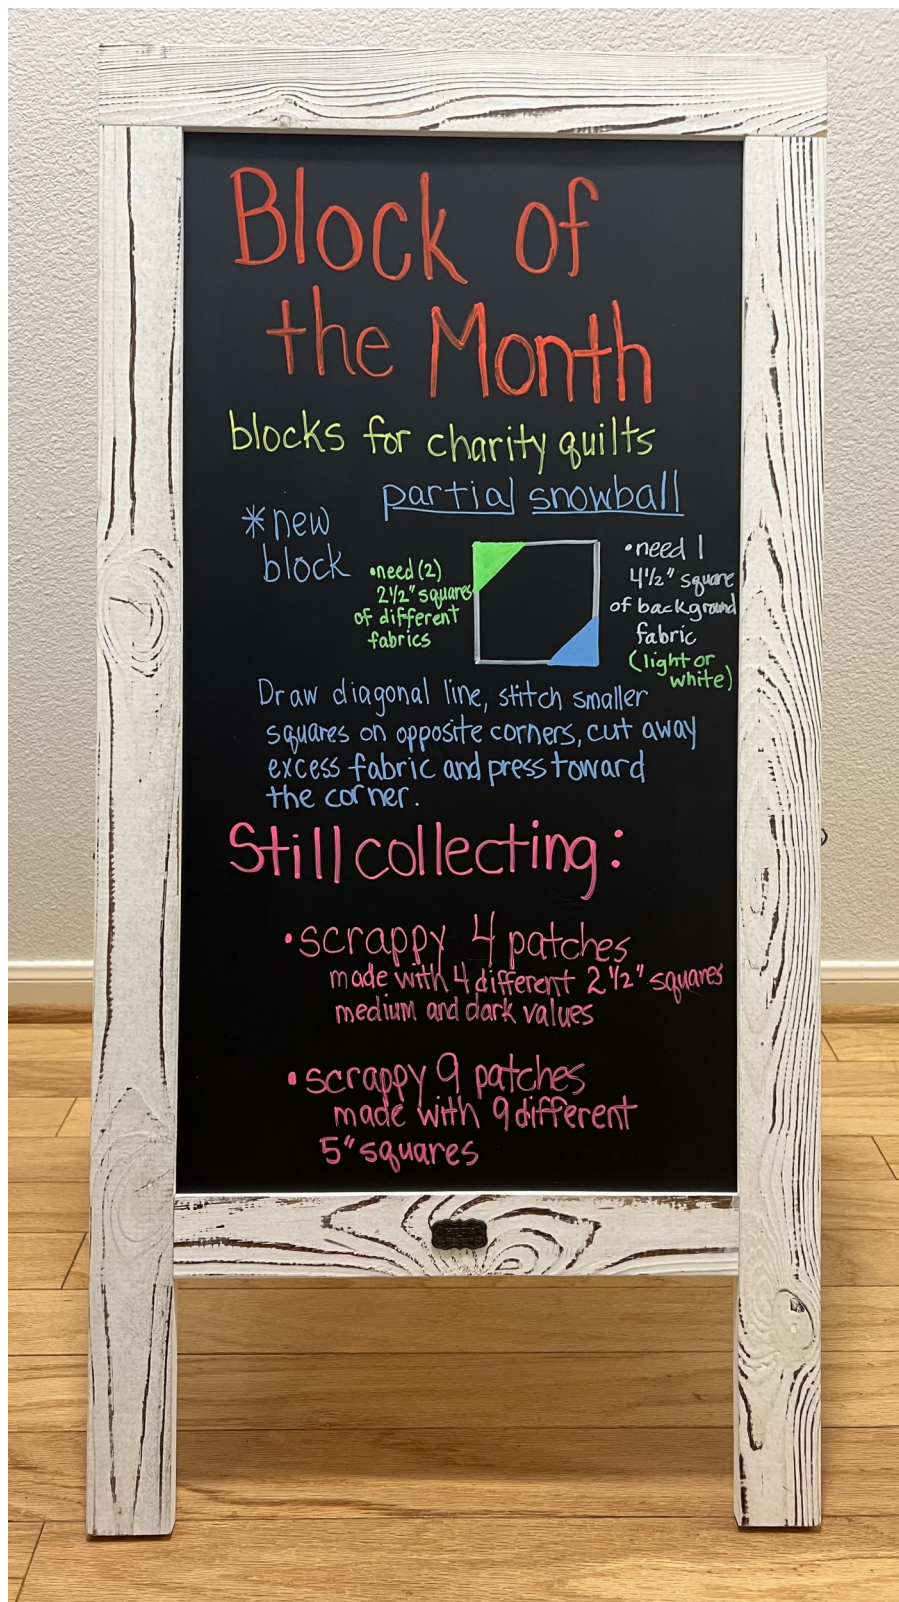 Block of
the Month
blocks for charity quilts
partial snowball
*new
block
•need (2)
2 1/2" squares
of different
fabrics
•need 1
4 1/2" square
of background
fabric
(light or
white)
Draw diagonal line, stitch smaller
squares on opposite corners, cut away
excess fabric and press toward
the corner.
Still collecting:
•scrappy 4 patches
made with 4 different 2 1/2" squares
medium and dark values
•scrappy 9 patches
made with 9 different
5" squares